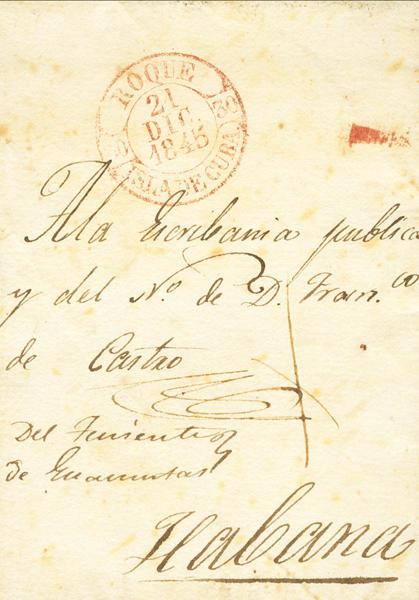 ROQUE
21
DIC.
1845
ISLA DE CUBA
A la Escribania publica
y del N.º de D. Fran.co
de Castro
Del Teniente
de Guamutas
Habana